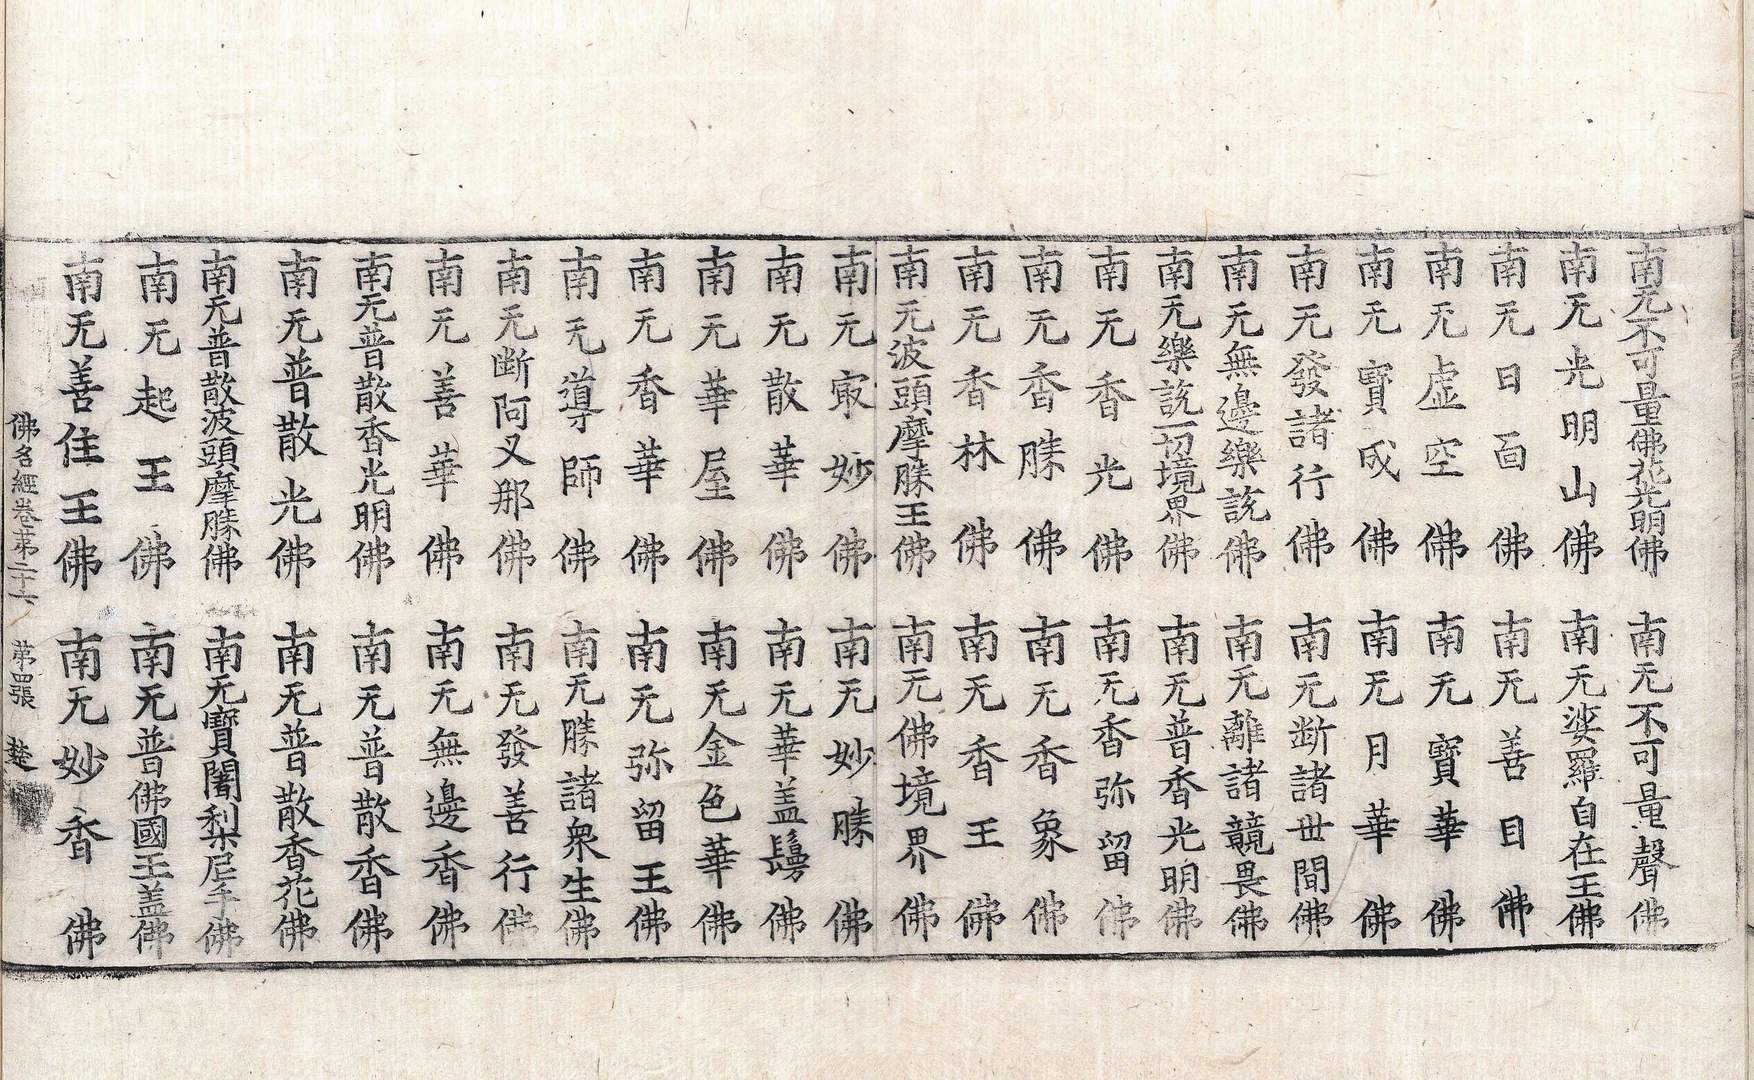 南无不可量佛花光明佛 南无不可量聲佛
南无光明山佛 南无娑羅自在王佛
南无日面佛 南无善目佛
南无虛空佛 南无寶華佛
南无寶成佛 南无月華佛
南无發諸行佛 南无断諸世間佛
南无無邊樂說佛 南无離諸競畏佛
南无樂說一切境界佛 南无普香光明佛
南无香光佛 南无香弥留佛
南无香勝佛 南无香象佛
南无香林佛 南无香王佛
南无波頭摩勝王佛 南无佛境界佛
南无㝡妙佛 南无妙勝佛
南无散華佛 南无華盖鬘佛
南无華屋佛 南无金色華佛
南无香華佛 南无弥留王佛
南无導師佛 南无勝諸衆生佛
南无断阿叉那佛 南无發善行佛
南无善華佛 南无無邊香佛
南无普散香光明佛 南无普散香佛
南无普散光佛 南无普散香花佛
南无普散波頭摩勝佛 南无寶闍梨尼手佛
南无起王佛 南无普佛國王盖佛
南无善住王佛 南无妙香佛
佛名經卷苐二十六 苐四張 楚